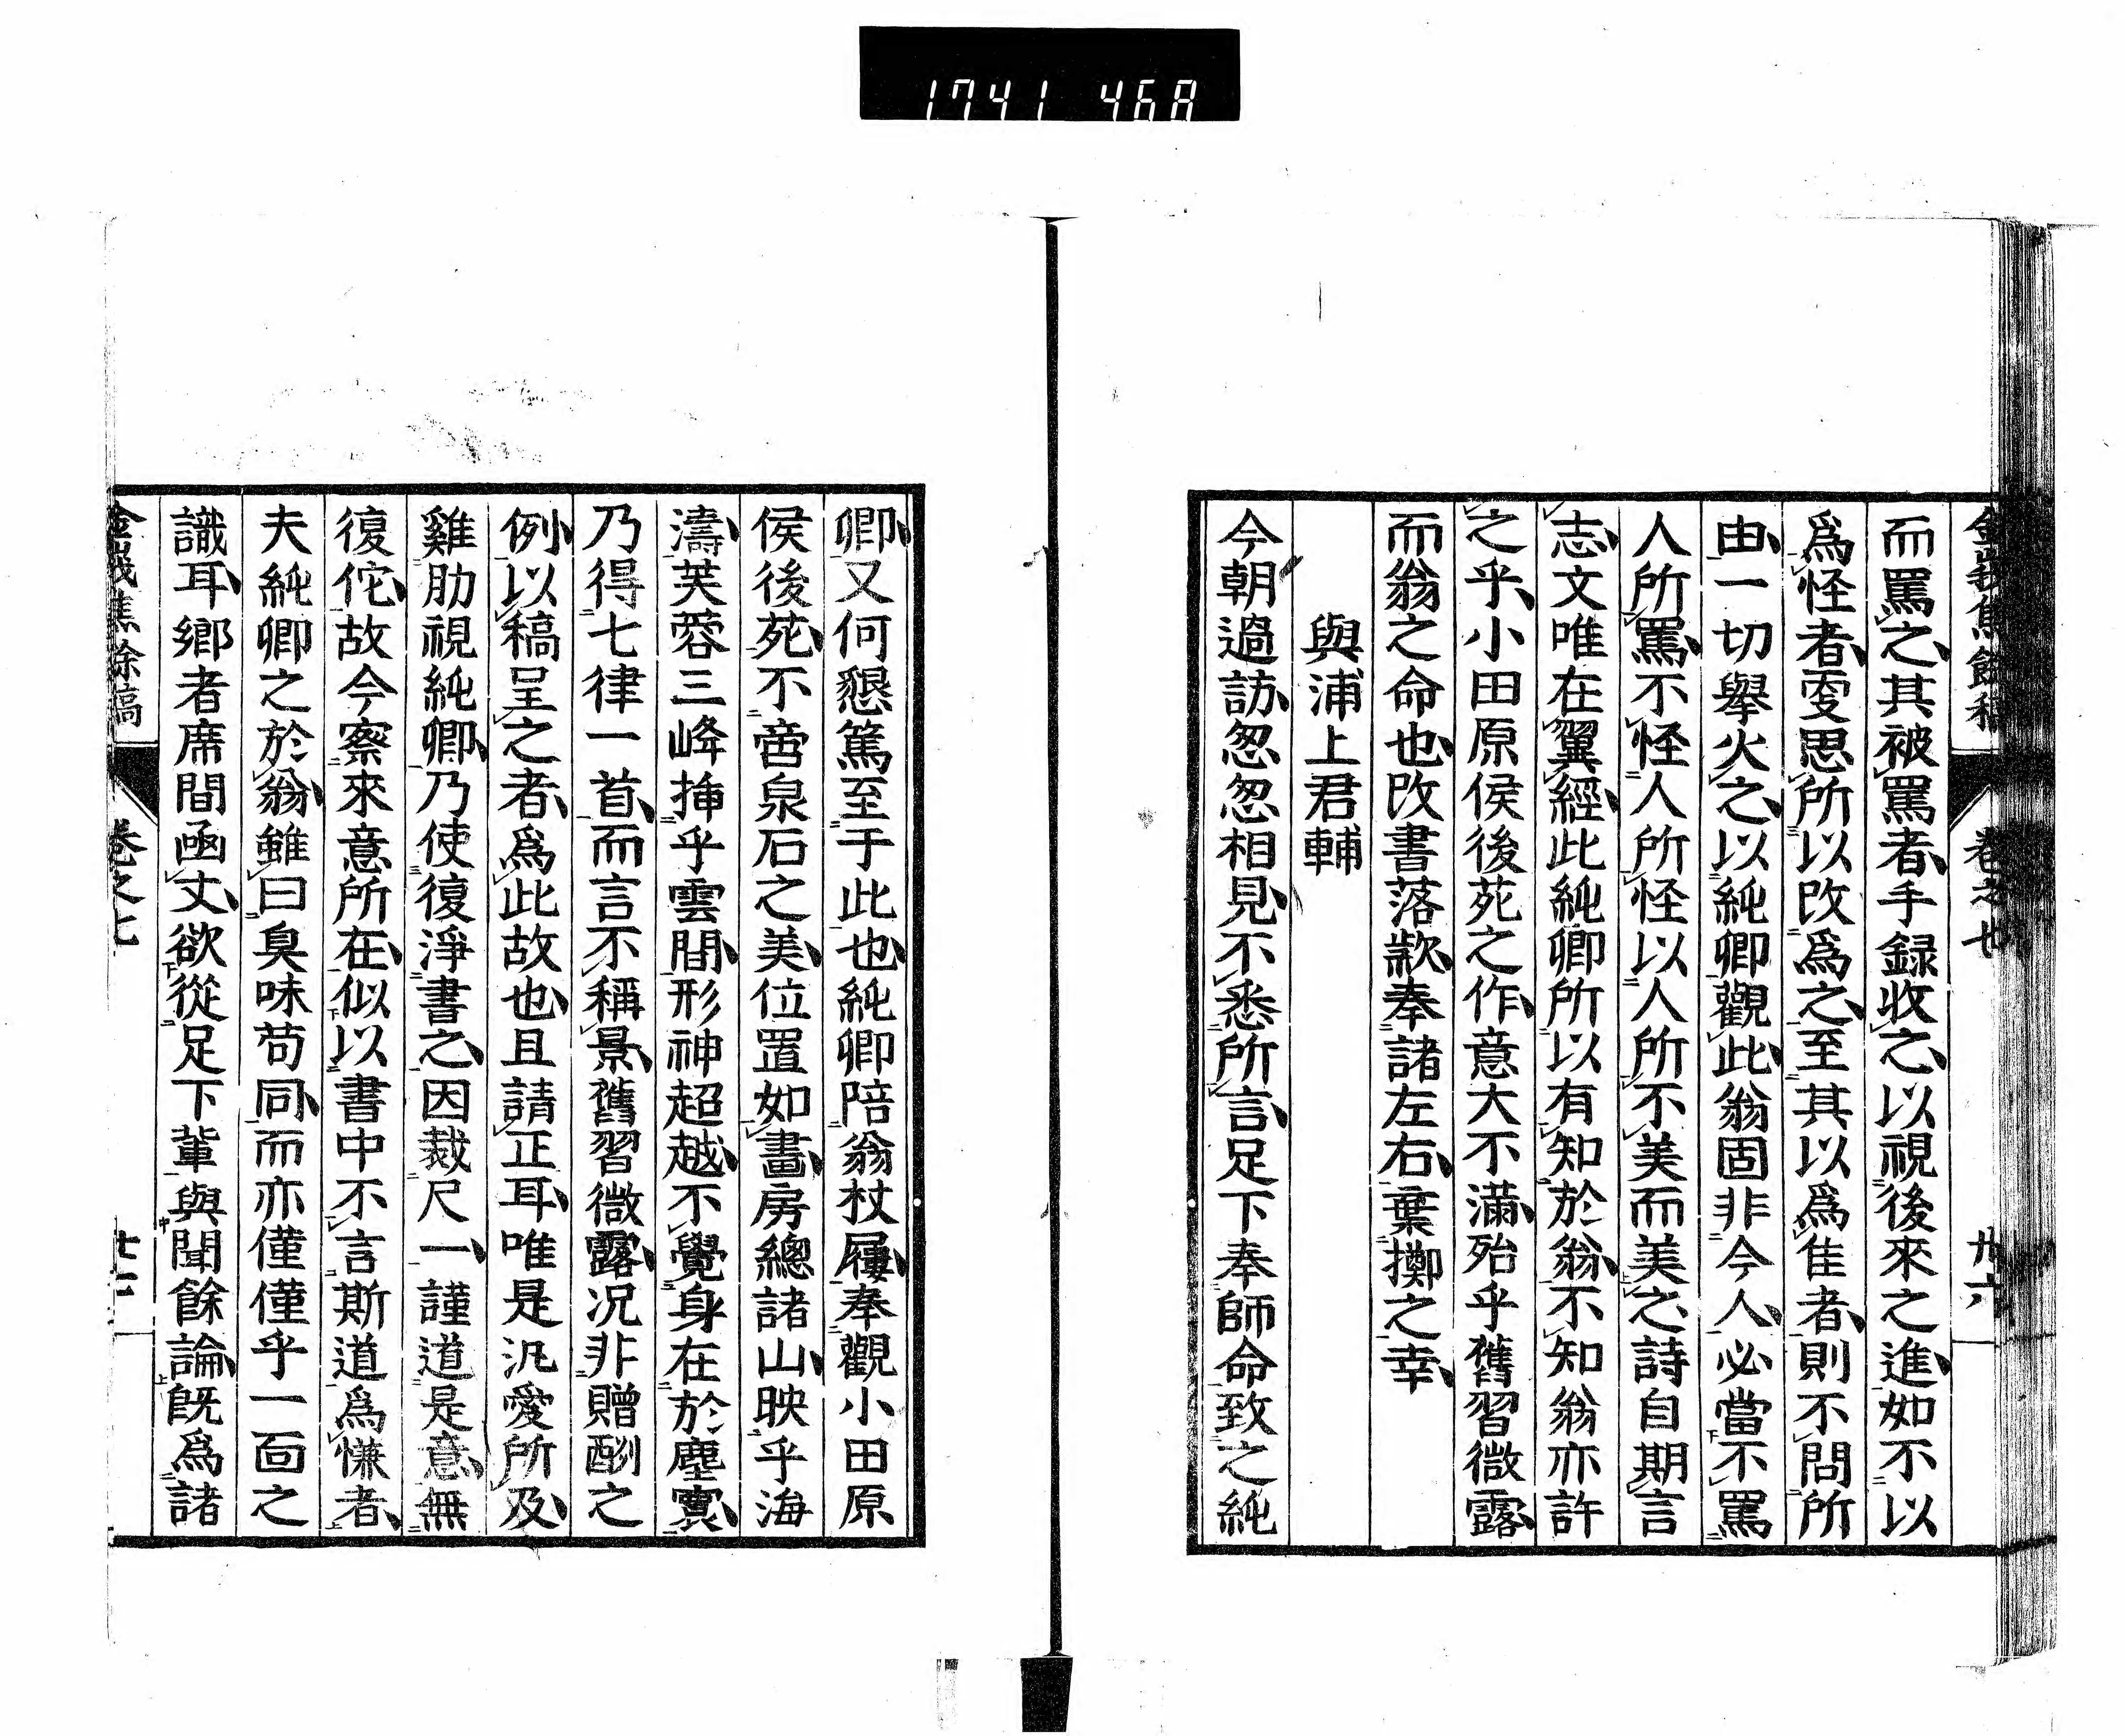 1741 468
金峩焦餘稿 卷之七 廿六
而罵之其被罵者手録收之以視後來之進如不以
爲怪者雯思所以改爲之至其以爲隹者則不問所
由一切擧火之以純卿觀此翁固非今人必當不罵
人所罵不怪人所怪以人所不美而美之詩自期言
志文唯在翼經此純卿所以有知於翁不知翁亦許
之乎小田原侯後苑之作意大不滿殆乎舊習微露
而翁之命也改書落款奉諸左右棄擲之幸
與浦上君輔
今朝過訪怱怱相見不悉所言足下奉師命致之純
卿又何懇篤至于此也純卿陪翁杖屨奉觀小田原
侯後苑不啻泉石之美位置如畫房總諸山映乎海
濤芙蓉三峰揷乎雲間形神超越不覺身在於塵寰
乃得七律一首而言不稱景舊習微露况非贈酬之
例以稿呈之者爲此故也且請正耳唯是汎愛所及
雞肋視純卿乃使復淨書之因裁尺一謹道是意無
復佗故今察來意所在似以書中不言斯道爲慊者
夫純卿之於翁雖曰臭味苟同而亦僅僅乎一面之
識耳鄉者席間凾丈欲從足下輩與聞餘論旣爲諸
金峩焦餘稿 卷之七